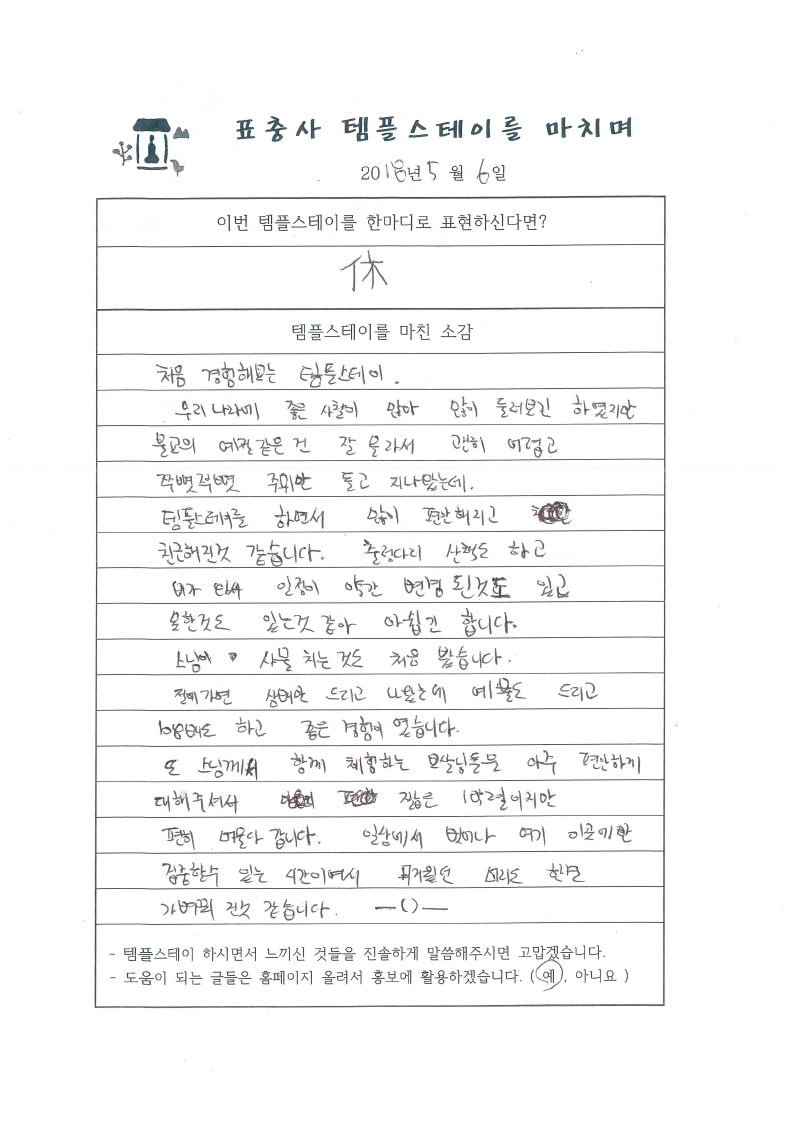 표충사 템플스테이를 마치며
2018년 5월 6일
이번 템플스테이를 한마디로 표현하신다면?
休
템플스테이를 마친 소감
처음 경험해보는 템플스테이.
우리나라에 좋은 사찰이 많아 많이 둘러보긴 하였지만
불교의 예절같은건 잘 몰라서 괜히 어렵고
쭈뼛쭈뼛 주위만 돌고 지나왔는데.
템플스테이를 하면서 많이 편안해지고
친근해진것 같습니다. 출렁다리 산책도 하고
비가 와서 일정이 약간 변경된것도 있고
못한것도 있는것 같아 아쉽긴 합니다.
스님이 사물 치는것도 처음 봤습니다.
절에가면 삼배만 드리고 나왔는데 예불도 드리고
108배도 하고 좋은 경험이 였습니다.
또 스님께서 함께 체험하는 보살님들도 아주 편안하게
대해주셔서 짧은 1박2일이지만
편히 머물다 갑니다. 일상에서 벗어나 여기 이곳에만
집중할수 있는 시간이여서 무거웠던 머리도 한결
가벼워 진것 같습니다. —( )—
- 템플스테이 하시면서 느끼신 것들을 진솔하게 말씀해주시면 고맙겠습니다.
- 도움이 되는 글들은 홈페이지 올려서 홍보에 활용하겠습니다. ( 예 , 아니요 )